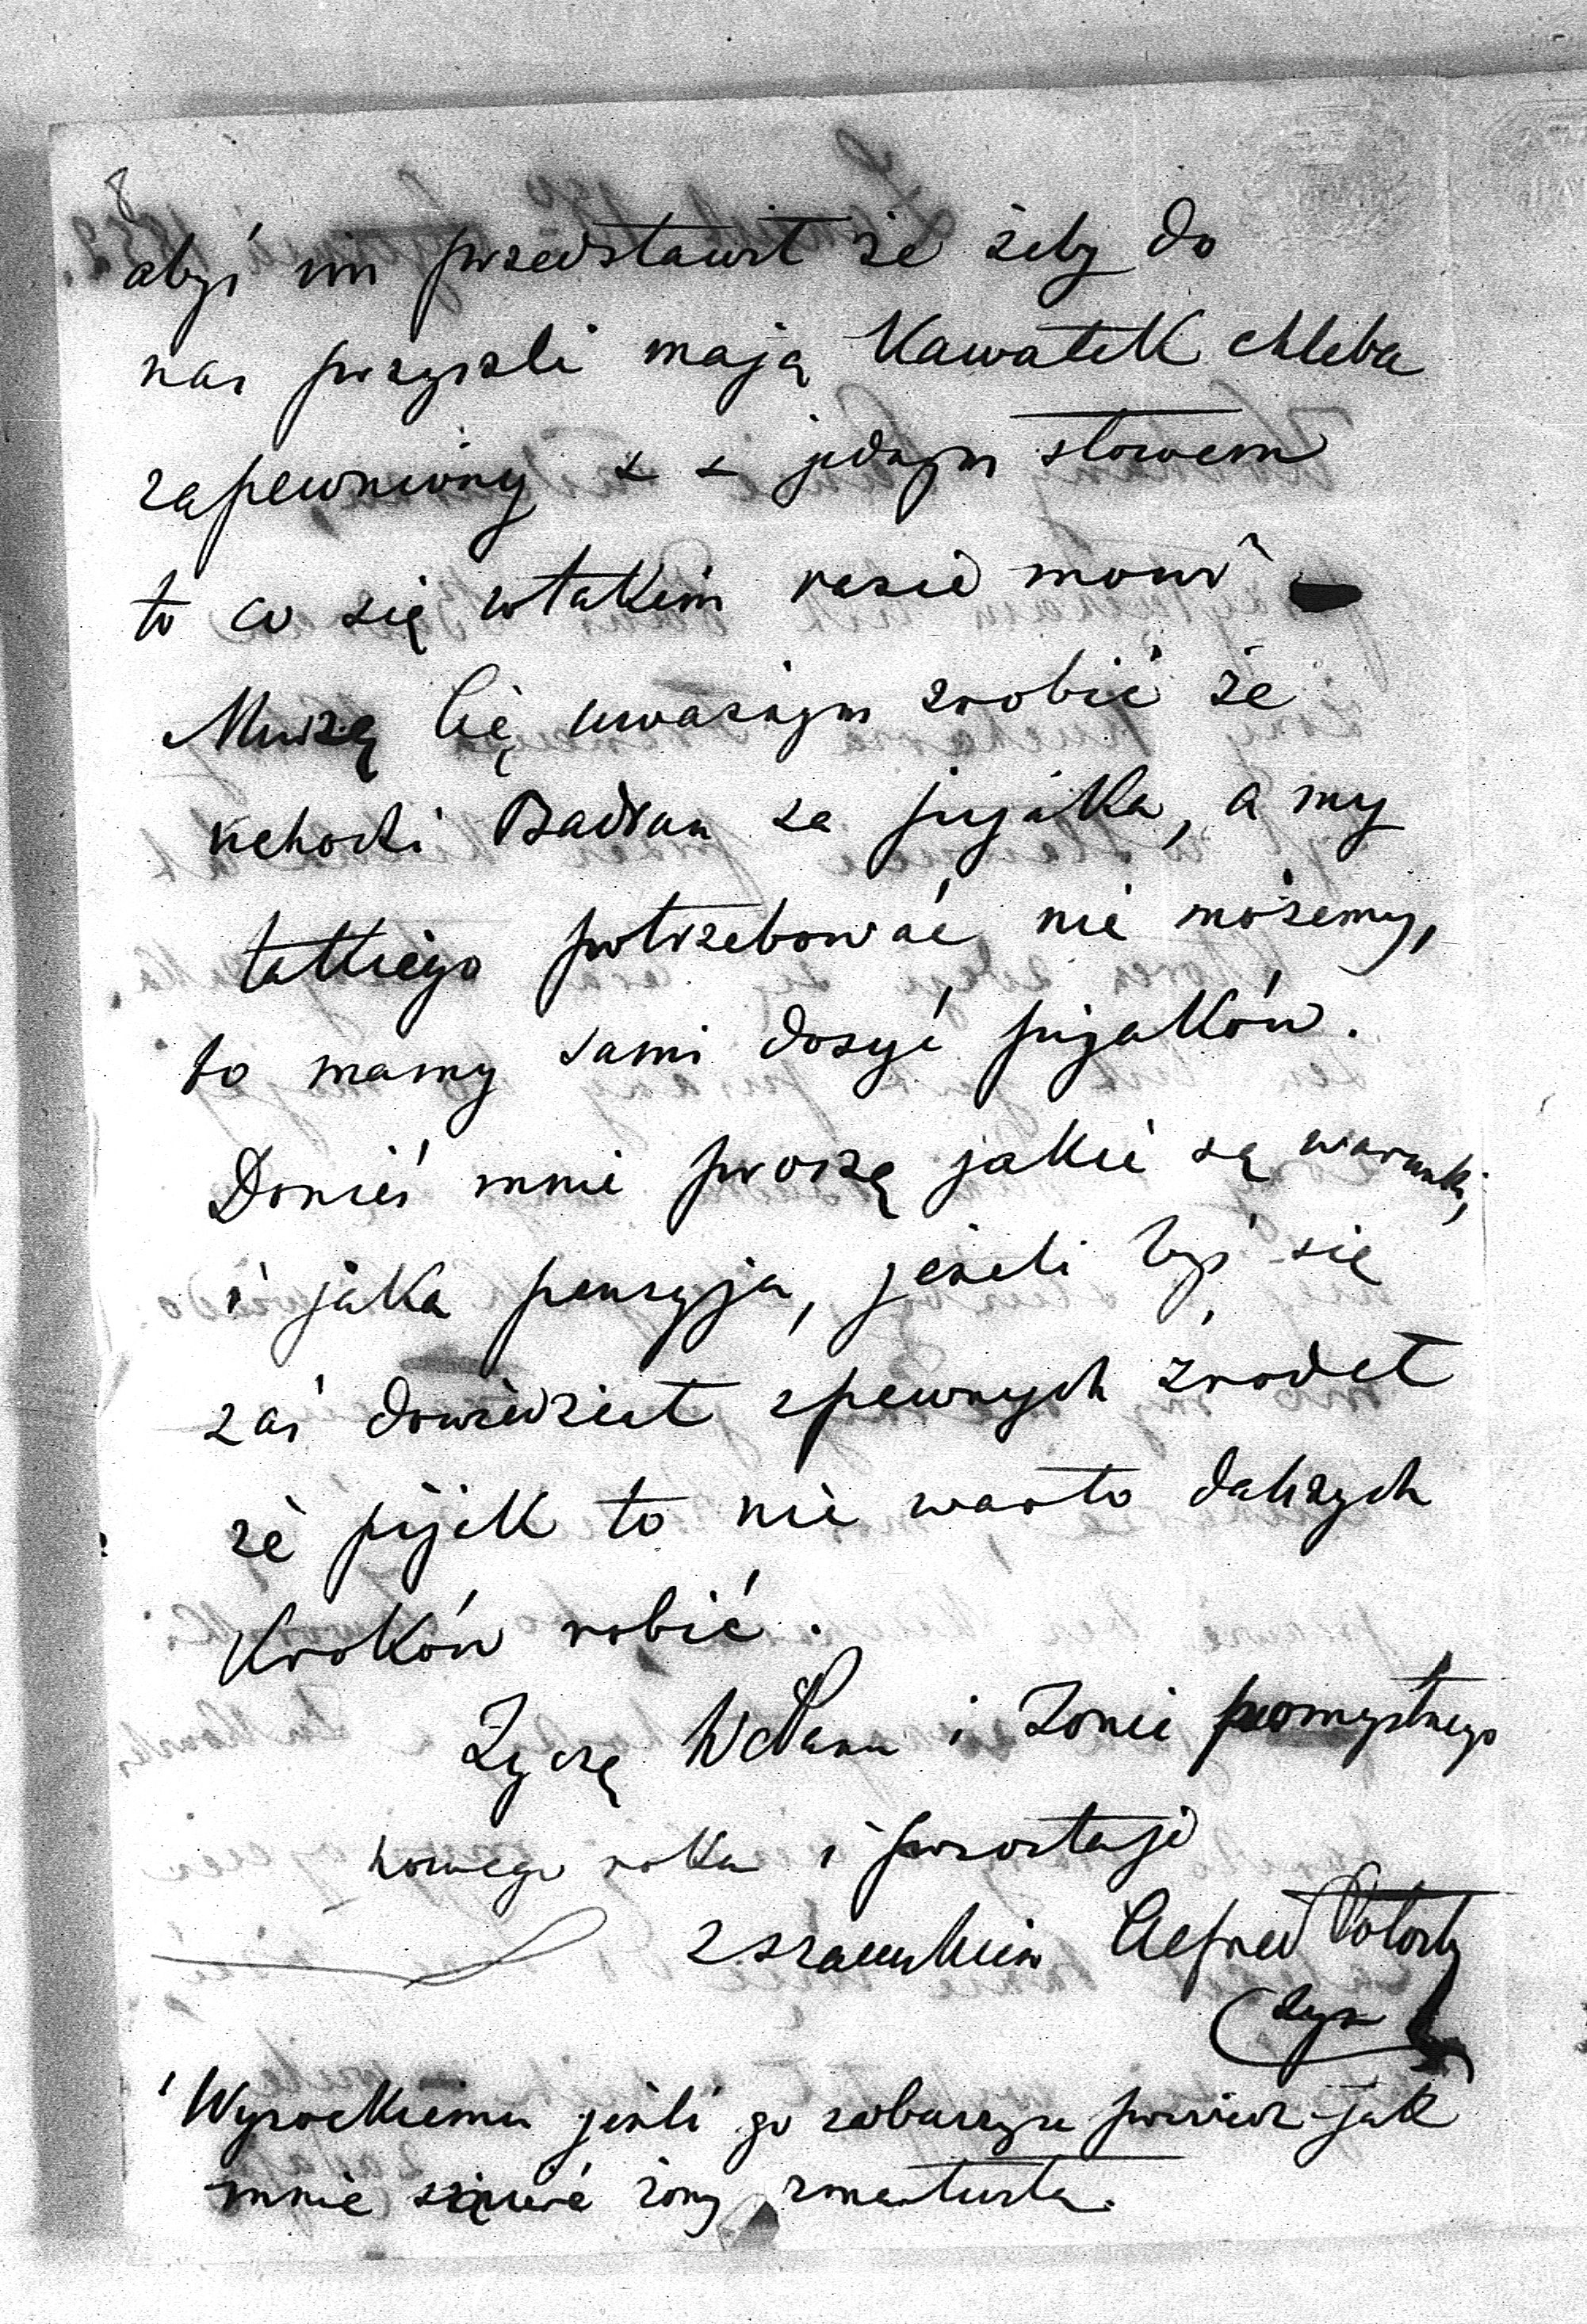 8
abyś im przedstawił że żeby do
nas przyszli mają Kawałek chleba
zapewniony x x jednym słowem
to co się wtakim razie mowi
Muszę Cię uważnym zrobić że
uchodzi Badran za pijaka, a my
takiego potrzebować nie możemy,
bo mamy sami dosyć pijaków.
Donieś mnie proszę jakie są warunki,
i jaka pensyja, jeżeli byś się
zaś dowiedział zpewnych źrodeł
że pijak to nie warto dalszych
Kroków robić.
Życzę WPanu i Żonie pomyślnego
nowego roku i pozostaję
zszacunkiem Alfred Potocki
syn
Wysockiemu jeżli go zobaczysz powiedz jak
mnie śmierć żony zmartwiła.